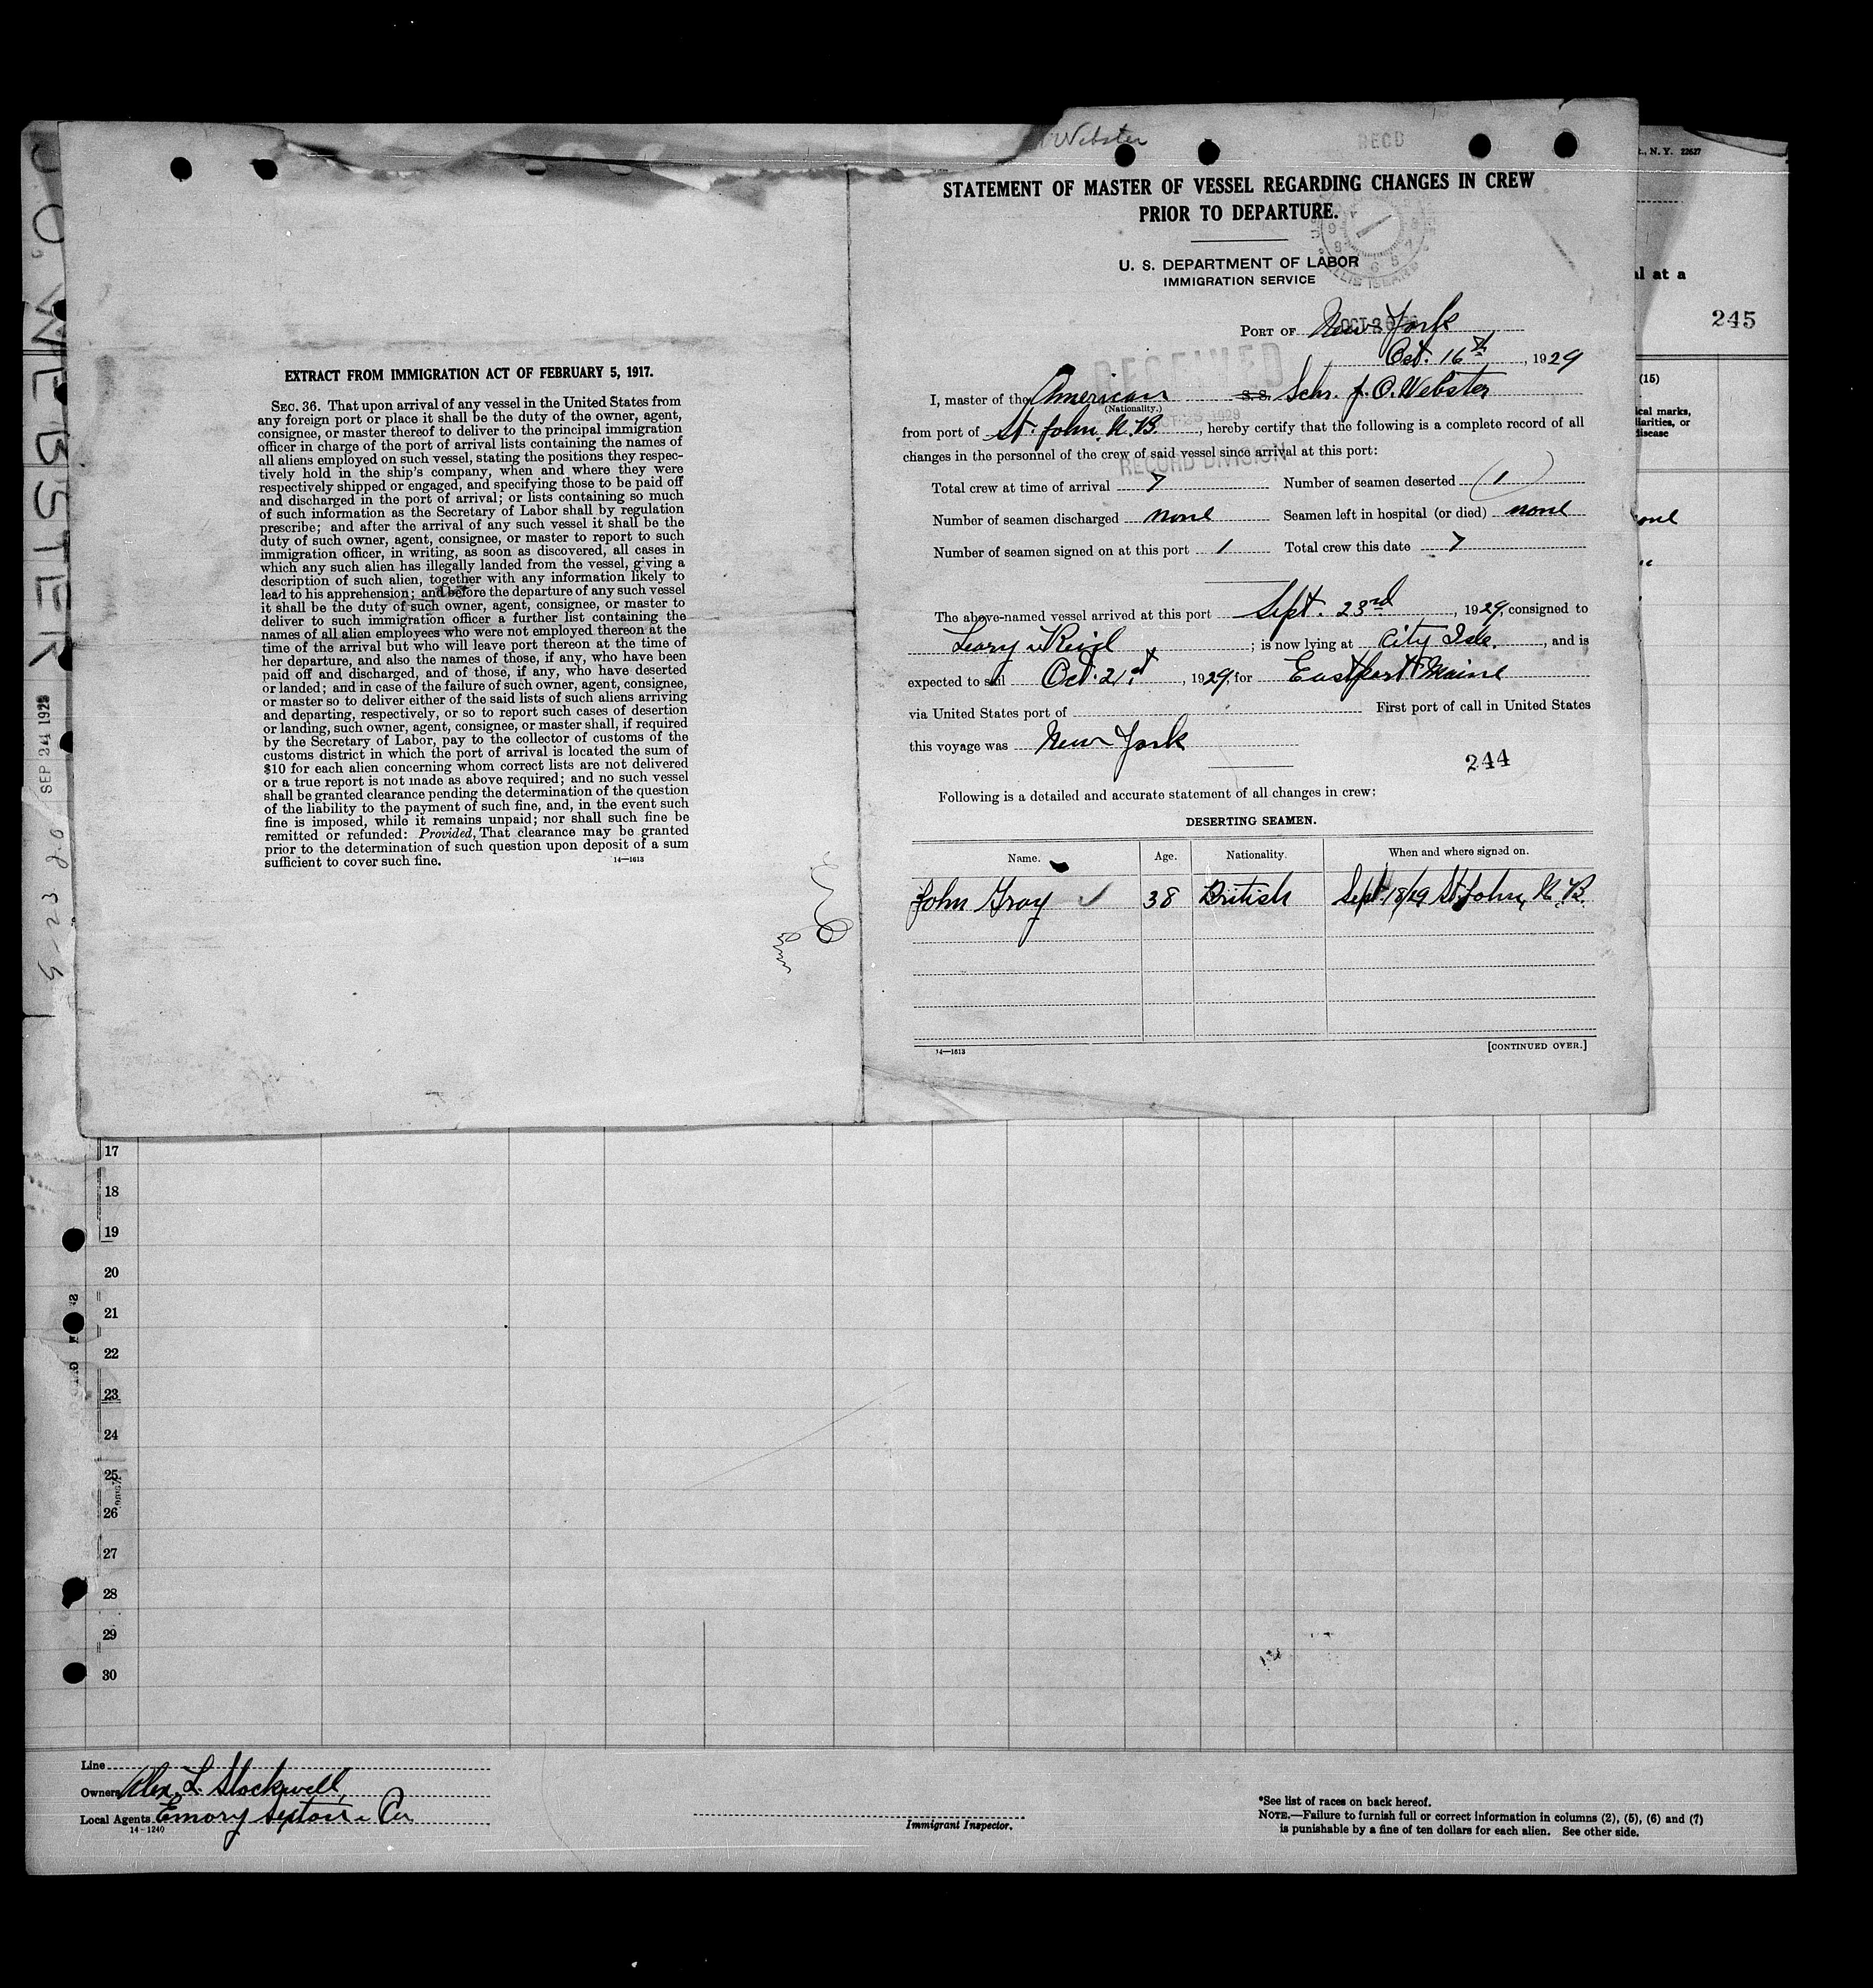 J. O. WEBSTER
SEP 24 1929
Webster
RECD
STATEMENT OF MASTER OF VESSEL REGARDING CHANGES IN CREW
PRIOR TO DEPARTURE.
U. S. DEPARTMENT OF LABOR
IMMIGRATION SERVICE
ELLIS ISLAND
PORT OF New York
Oct. 16th, 1929
RECEIVED
RECORD DIVISION
I, master of the American S.S. Schr. J. O. Webster
(Nationality.)
from port of St. John, N.B., hereby certify that the following is a complete record of all
changes in the personnel of the crew of said vessel since arrival at this port:
Total crew at time of arrival 7 Number of seamen deserted (1)
Number of seamen discharged none Seamen left in hospital (or died) none
Number of seamen signed on at this port 1 Total crew this date 7
The above-named vessel arrived at this port Sept. 23rd, 1929, consigned to
; is now lying at City Isle., and is
expected to sail Oct. 21st, 1929, for Eastport Maine
via United States port of First port of call in United States
this voyage was New York
244
Following is a detailed and accurate statement of all changes in crew:
DESERTING SEAMEN.
Name. Age. Nationality. When and where signed on.
John Gray ✓ 38 British Sept. 18/29 St. John, N. B.
14—1613
[CONTINUED OVER.]
EXTRACT FROM IMMIGRATION ACT OF FEBRUARY 5, 1917.
SEC. 36. That upon arrival of any vessel in the United States from
any foreign port or place it shall be the duty of the owner, agent,
consignee, or master thereof to deliver to the principal immigration
officer in charge of the port of arrival lists containing the names of
all aliens employed on such vessel, stating the positions they respec-
tively hold in the ship's company, when and where they were
respectively shipped or engaged, and specifying those to be paid off
and discharged in the port of arrival; or lists containing so much
of such information as the Secretary of Labor shall by regulation
prescribe; and after the arrival of any such vessel it shall be the
duty of such owner, agent, consignee, or master to report to such
immigration officer, in writing, as soon as discovered, all cases in
which any such alien has illegally landed from the vessel, giving a
description of such alien, together with any information likely to
lead to his apprehension; and before the departure of any such vessel
it shall be the duty of such owner, agent, consignee, or master to
deliver to such immigration officer a further list containing the
names of all alien employees who were not employed thereon at the
time of the arrival but who will leave port thereon at the time of
her departure, and also the names of those, if any, who have been
paid off and discharged, and of those, if any, who have deserted
or landed; and in case of the failure of such owner, agent, consignee,
or master so to deliver either of the said lists of such aliens arriving
and departing, respectively, or so to report such cases of desertion
or landing, such owner, agent, consignee, or master shall, if required
by the Secretary of Labor, pay to the collector of customs of the
customs district in which the port of arrival is located the sum of
$10 for each alien concerning whom correct lists are not delivered
or a true report is not made as above required; and no such vessel
shall be granted clearance pending the determination of the question
of the liability to the payment of such fine, and, in the event such
fine is imposed, while it remains unpaid; nor shall such fine be
remitted or refunded: Provided, That clearance may be granted
prior to the determination of such question upon deposit of a sum
sufficient to cover such fine.
14—1613
N. Y. 22627
al at a
245
(15)
ical marks,
liarities, or
disease
17
18
19
20
21
22
23
24
25
26
27
28
29
30
Line
Owners Alex. L. Stockwell
Local Agents Emory Co
14-1240
Immigrant Inspector.
*See list of races on back hereof.
NOTE.—Failure to furnish full or correct information in columns (2), (5), (6) and (7)
is punishable by a fine of ten dollars for each alien. See other side.